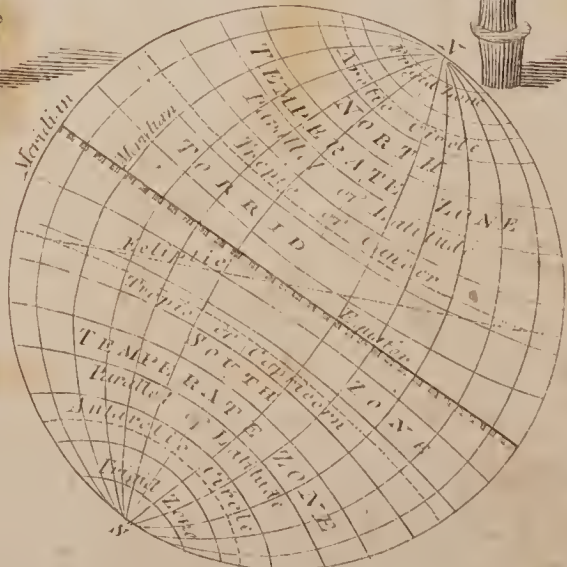 N
Frigid Zone
Arctic Circle
NORTH
TEMPERATE ZONE
Parallel of Latitude
Tropic of Cancer
Meridian
Meridian
TORRID
ZONE
Ecliptic
Equator
Tropic of Capricorn
SOUTH
TEMPERATE ZONE
Parallel of Latitude
Antarctic Circle
Frigid Zone
S